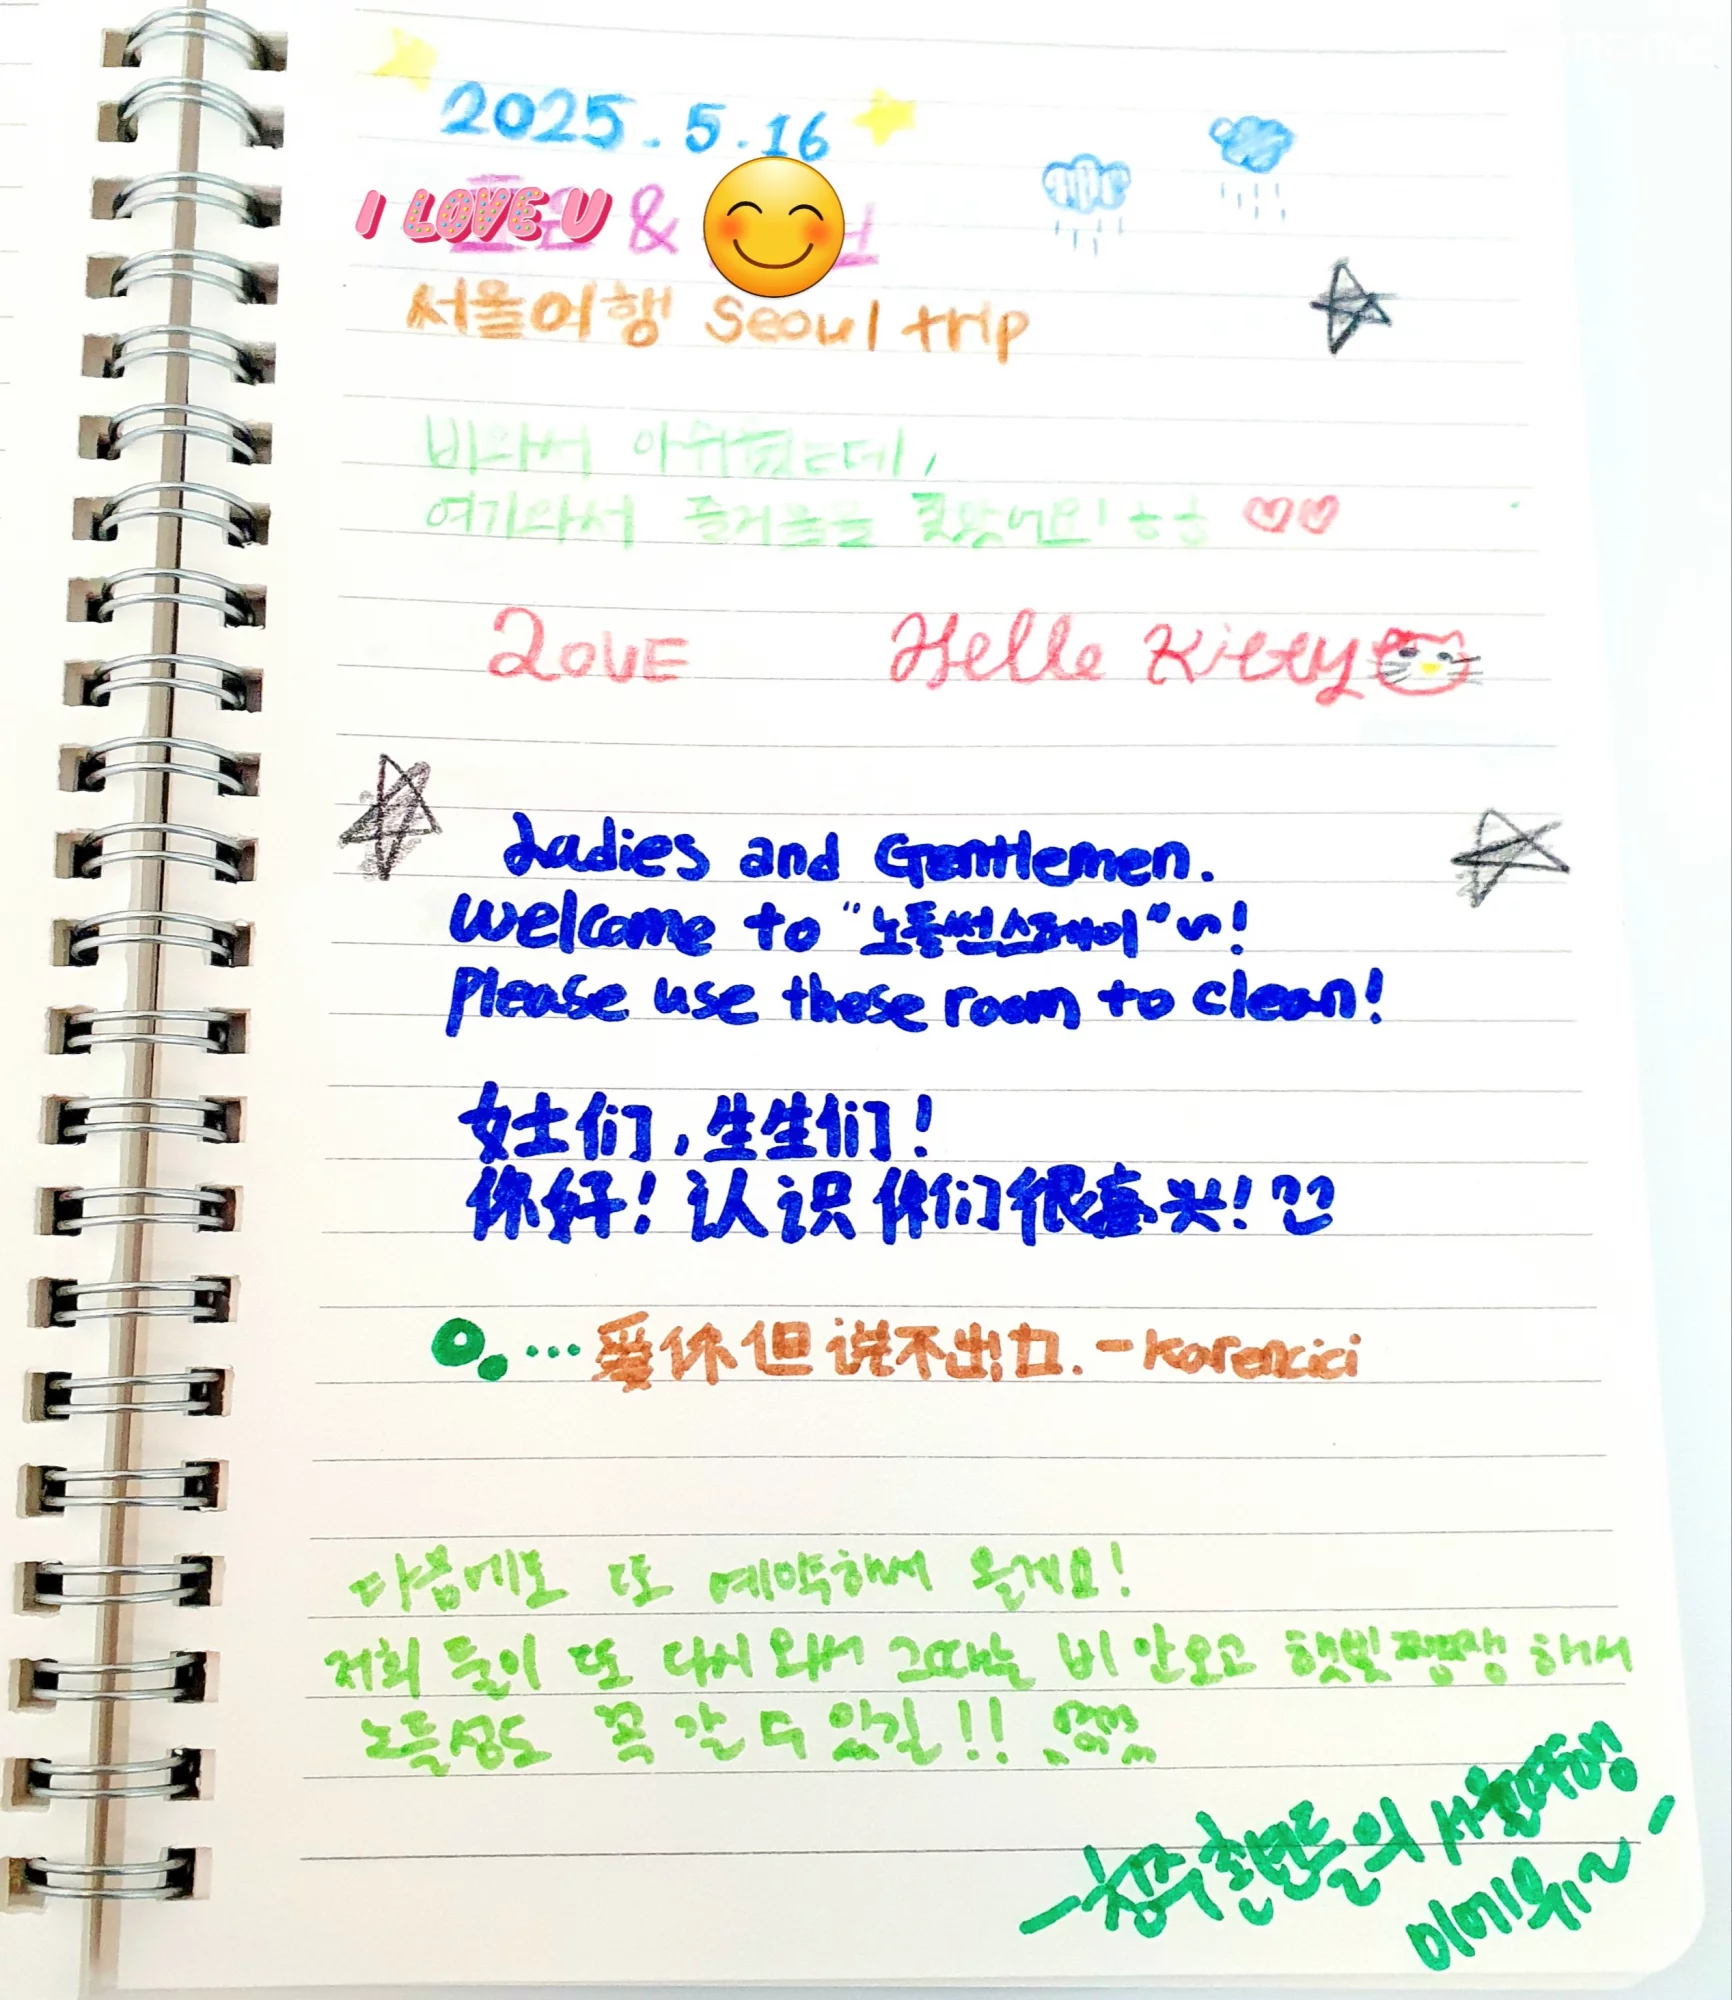 2025.5.16
I LOVE U &
서울여행 Seoul trip
비와서 아쉬웠는데,
여기와서 즐거움을 찾았어요! ㅎㅎ ♡♡
LOVE Hello Kitty
Ladies and Gentlemen.
Welcome to "노들썬스테이"~!
Please use these room to clean!
女士们,生生们!
你好! 认识你们很喜兴!
... 爱你但说不出口. - Karencici
다음에도 또 예약해서 올게요!
저희 둘이 또 다시 와서 그때는 비 안오고 햇빛 쨍쨍 해서
노들섬도 꼭 갈 수 있길!!
- 청주 촌년들의 서울여행
이예뷔~ -